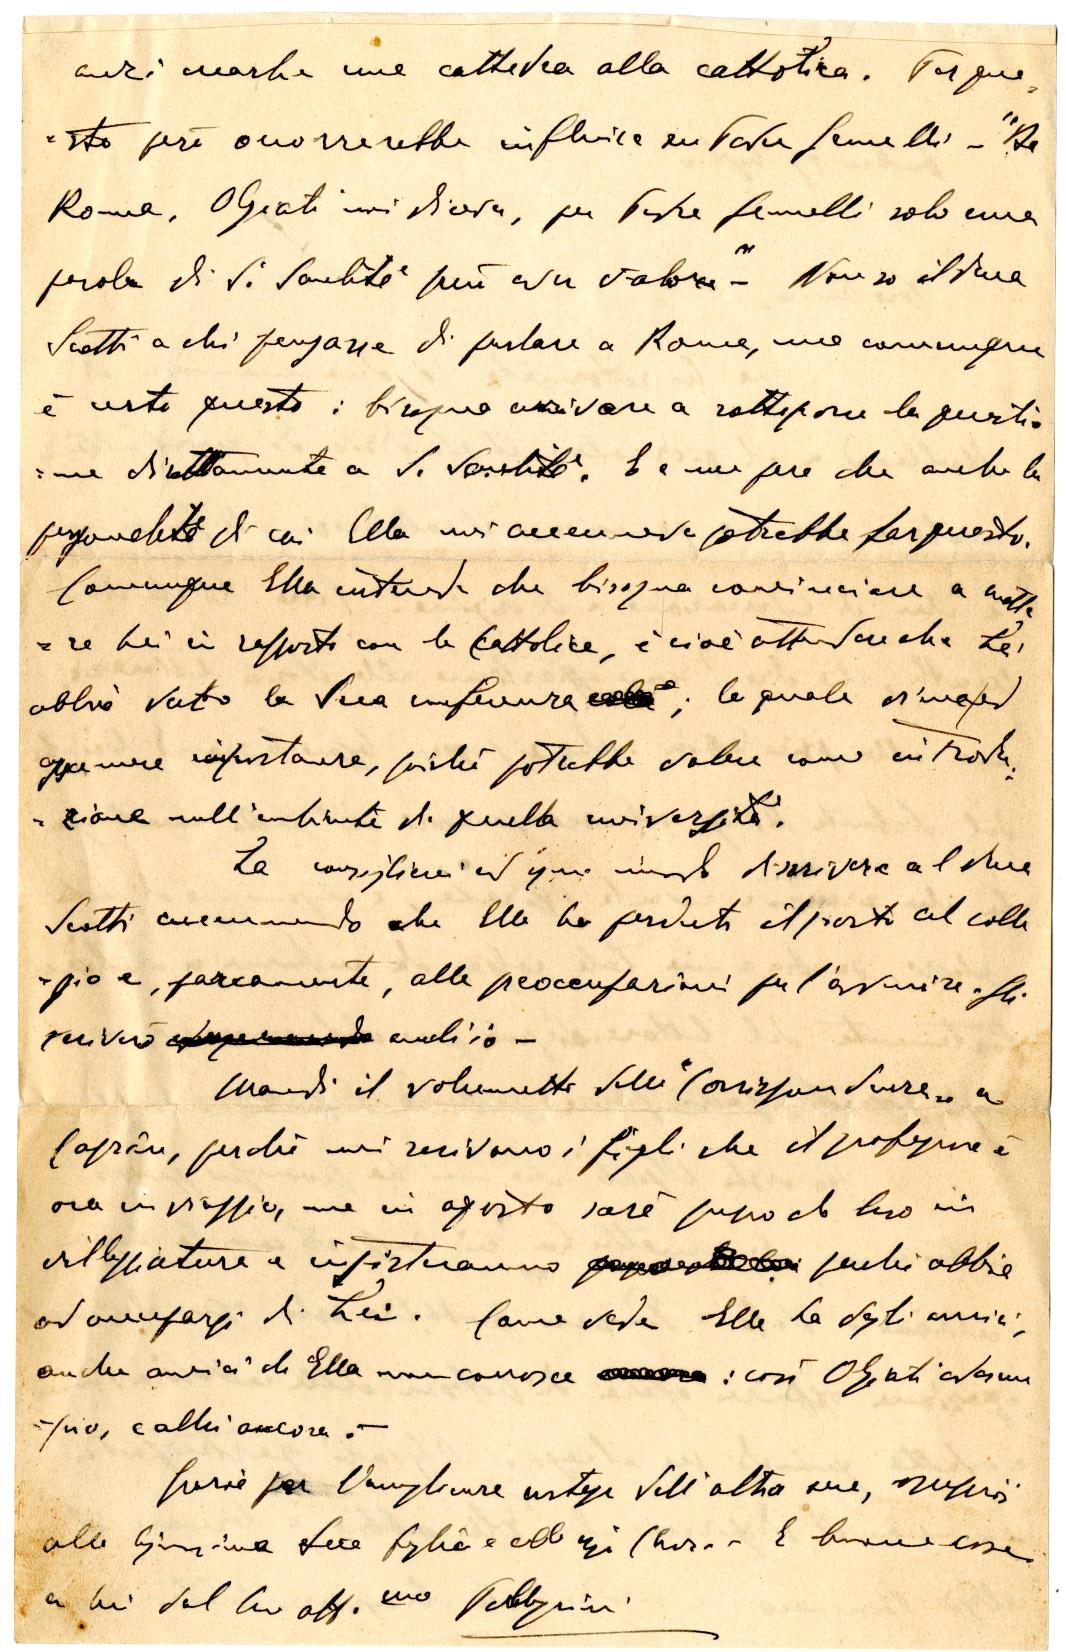 anzi anche una cattedra alla Cattolica. Per que-
-sto però occorrerebbe influire su Padre Gemelli - "Da
Roma, Olgiati mi diceva, per Padre Gemelli solo una
parola di S. Santità può aver valore" - Non so il duca
Scotti a chi pensasse di parlare a Roma, ma comunque
è certo questo: bisogna arrivare a sottoporre la questio-
-ne direttamente a S. Santità. E a me pare che anche la
personalità di cui Ella mi accennava potrebbe far questo.
Comunque Ella intende che bisogna cominciare a mette-
-re Lei in rapporto con la Cattolica, e cioè attendere che Lei
abbia dato la Sua conferenza; la quale
importanza, poichè potrebbe valere come introdu-
-zione nell'ambiente di quella università.
La consiglierei ad ogni modo di scrivere al duca
Scotti accennando che Ella ha perduto il posto al colle
-gio e, parcamente, alle preoccupazioni per l'avvenire. Gli
scriverò anch'io -
Mandi il volumetto della "Corrispondenza" a
perchè mi scrivono i figli che il professore è
ora in viaggio, ma in agosto sarà presso di loro in
villeggiatura e insisteranno perchè abbia
ad occuparsi di Lei. Come vede Ella ha degli amici,
anche amici che Ella non conosce: così Olgiati ad esem
-pio, e altri ancora. -
Grazie per l'accoglienza cortese dell'altra sera,
alla Sua figlia e alla E buone cose
a Lei dal Suo aff.mo Pellegrini